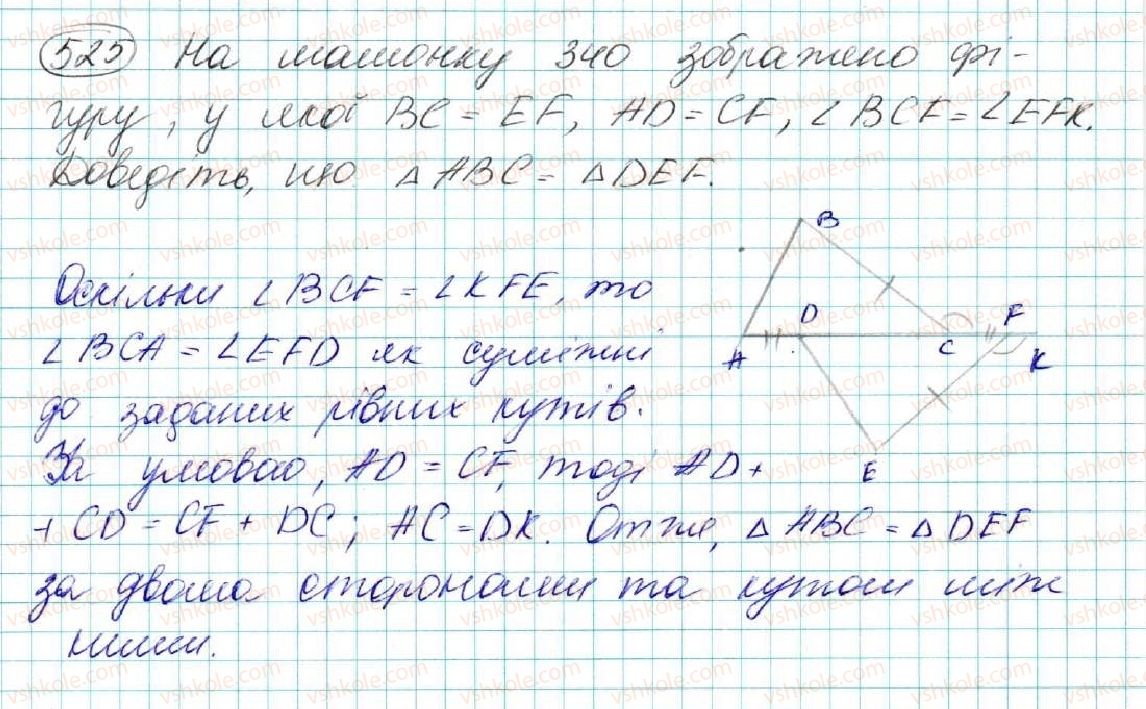 525 На малюнку 340 зображено фі-
гуру, у якої BC = EF, AD = CF, ∠BCF = ∠EFK.
Доведіть, що △ABC = △DEF.
B
Оскільки ∠BCF = ∠KFE, то
D F
∠BCA = ∠EFD як суміжні
A C K
до заданих рівних кутів.
За умовою, AD = CF, тоді AD +
E
+ CD = CF + DC; AC = DK. Отже, △ABC = △DEF
за двома сторонами та кутом між
ними.
vshkole.com